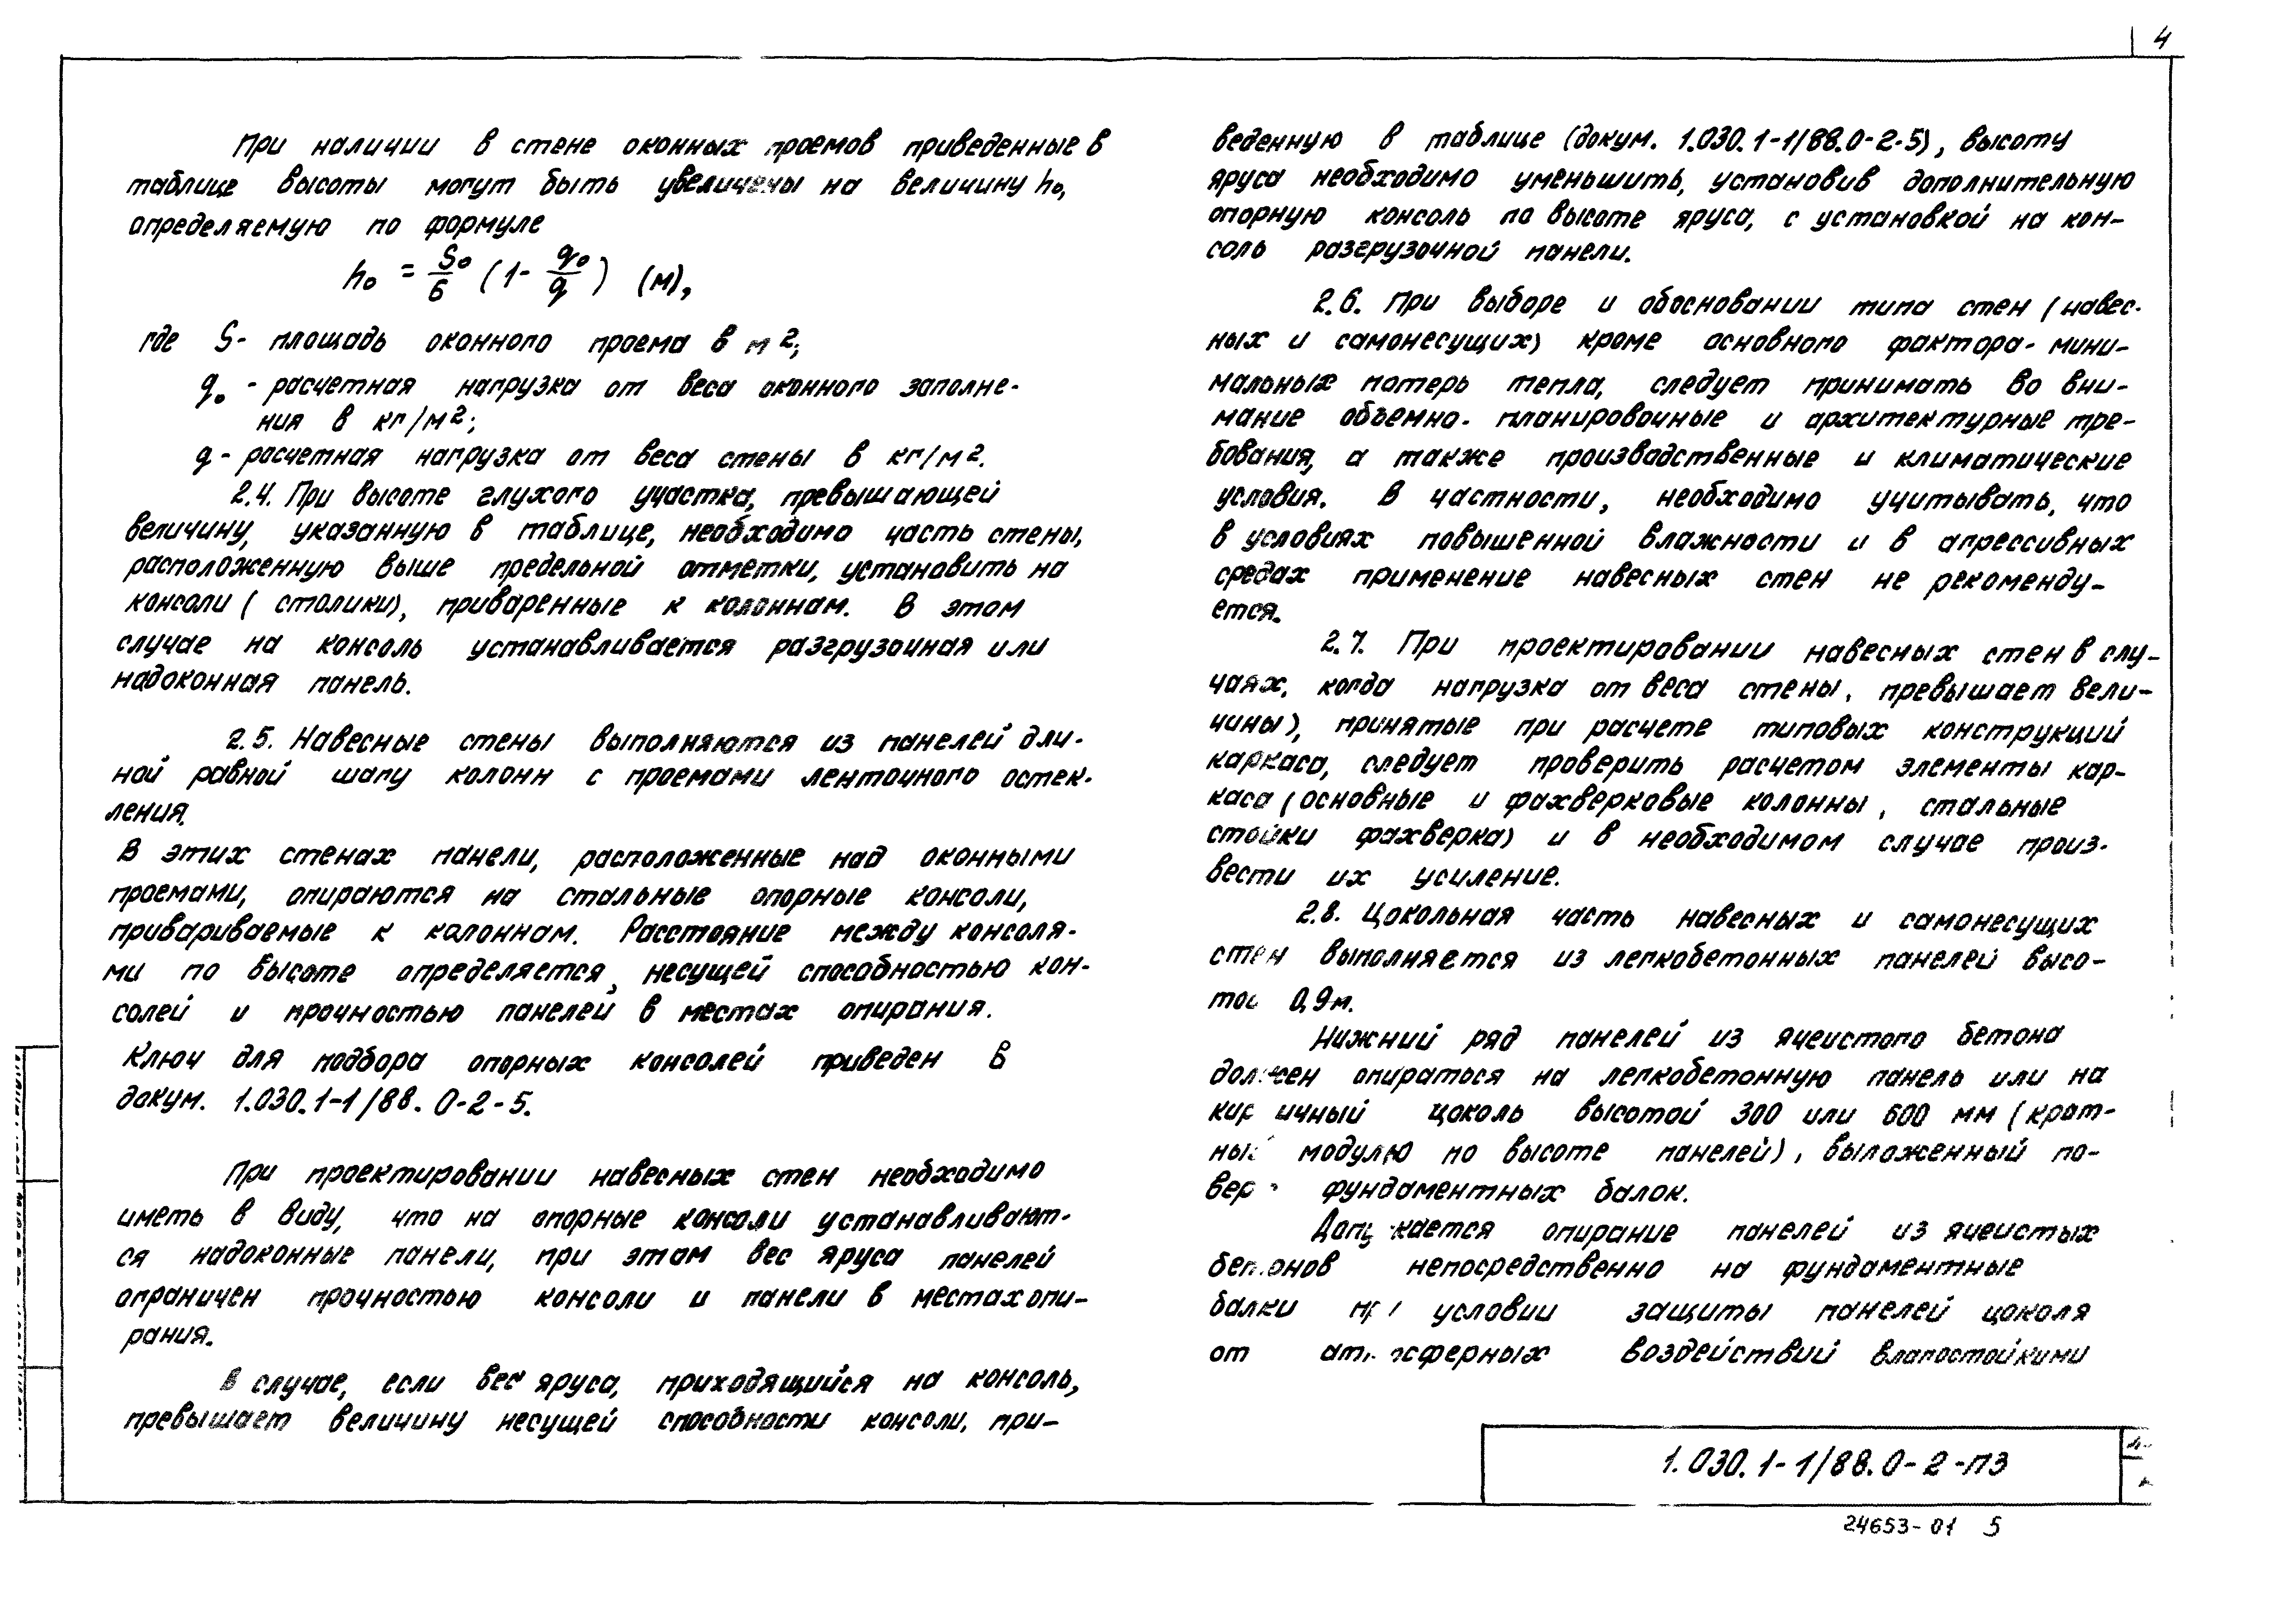 4
При наличии в стене оконных проемов приведенные в
таблице высоты могут быть увеличены на величину h₀,
определяемую по формуле
h₀ = S₀/6 (1- q₀/q) (м),
где S- площадь оконного проема в м2;
q₀ - расчетная нагрузка от веса оконного заполне-
ния в кг/м2;
q - расчетная нагрузка от веса стены в кг/м2.
2.4. При высоте глухого участка, превышающей
величину, указанную в таблице, необходимо часть стены,
расположенную выше предельной отметки, установить на
консоли (столики), приваренные к колоннам. В этом
случае на консоль устанавливается разгрузочная или
надоконная панель.
2.5. Навесные стены выполняются из панелей дли-
ной равной шагу колонн с проемами ленточного остек-
ления.
В этих стенах панели, расположенные над оконными
проемами, опираются на стальные опорные консоли,
привариваемые к колоннам. Расстояние между консоля-
ми по высоте определяется, несущей способностью кон-
солей и прочностью панелей в местах опирания.
Ключ для подбора опорных консолей приведен в
докум. 1.030.1-1/88. 0-2-5.
При проектировании навесных стен необходимо
иметь в виду, что на опорные консоли устанавливают-
ся надоконные панели, при этом вес яруса панелей
ограничен прочностью консоли и панели в местах опи-
рания.
В случае, если вес яруса, приходящийся на консоль,
превышает величину несущей способности консоли, при-
веденную в таблице (докум. 1.030.1-1/88.0-2-5), высоту
яруса необходимо уменьшить, установив дополнительную
опорную консоль по высоте яруса, с установкой на кон-
соль разгрузочной панели.
2.6. При выборе и обосновании типа стен (навес-
ных и самонесущих) кроме основного фактора- мини-
мальных потерь тепла, следует принимать во вни-
мание объемно- планировочные и архитектурные тре-
бования, а также производственные и климатические
условия. В частности, необходимо учитывать, что
в условиях повышенной влажности и в агрессивных
средах применение навесных стен не рекоменду-
ется.
2.7. При проектировании навесных стен в слу-
чаях, когда нагрузка от веса стены, превышает вели-
чины), принятые при расчете типовых конструкций
каркаса, следует проверить расчетом элементы кар-
каса (основные и фахверковые колонны, стальные
стойки фахверка) и в необходимом случае произ-
вести их усиление.
2.8. Цокольная часть навесных и самонесущих
стен выполняется из легкобетонных панелей высо-
той 0,9м.
Нижний ряд панелей из ячеистого бетона
должен опираться на легкобетонную панель или на
кирпичный цоколь высотой 300 или 600 мм (крат-
ный модулю по высоте панелей), выложенный по-
верх фундаментных балок.
Допускается опирание панелей из ячеистых
бетонов непосредственно на фундаментные
балки при условии защиты панелей цоколя
от атмосферных воздействий влагостойкими
1.030.1-1/88.0-2-ПЗ
24653-01 5